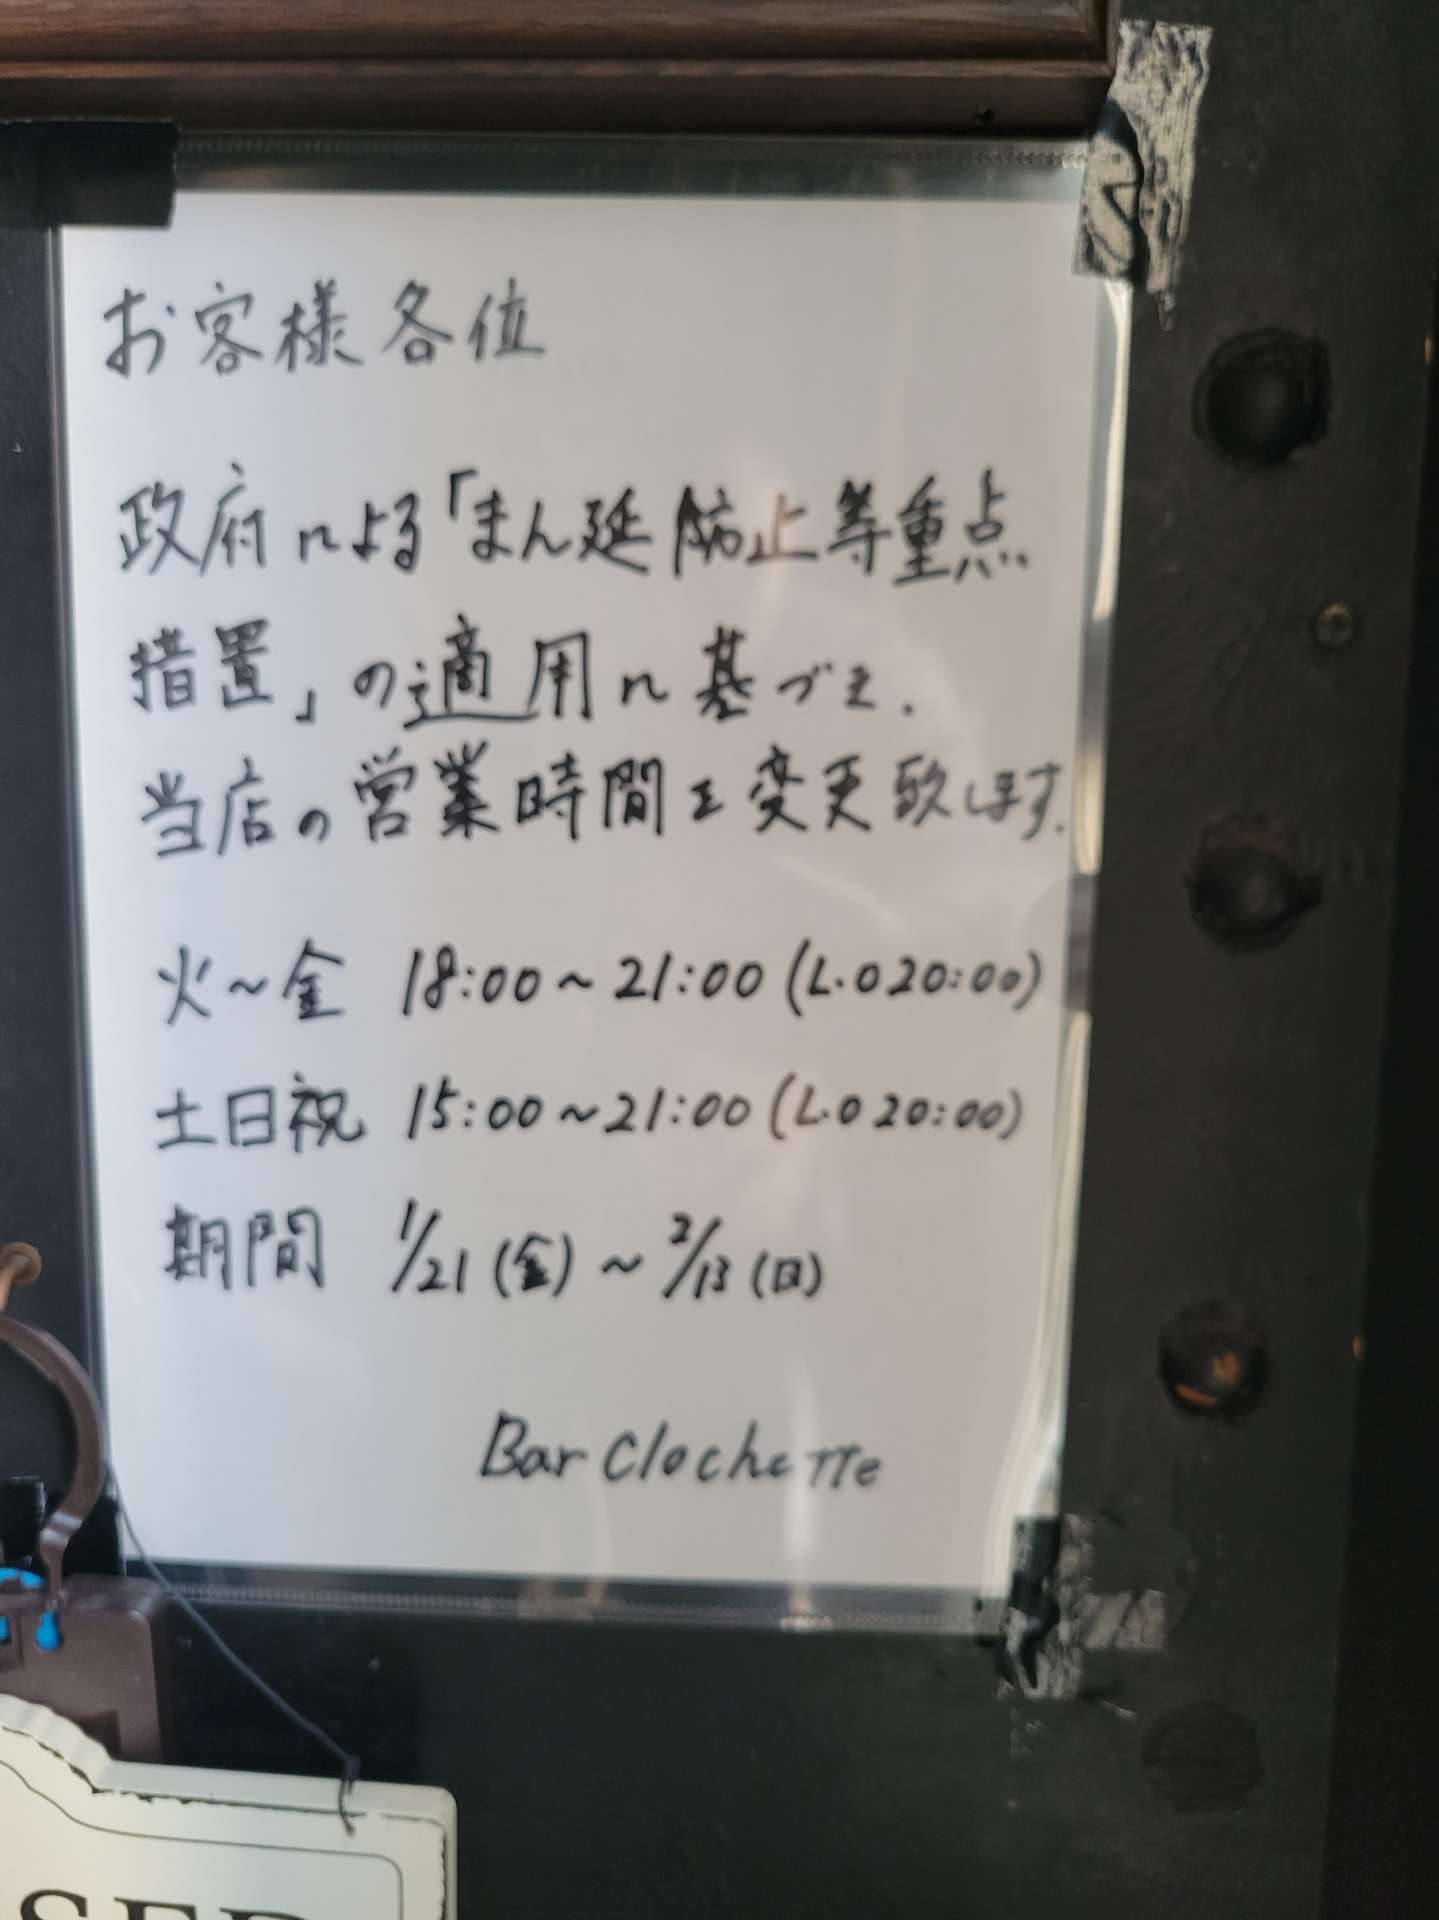 お客様各位
政府による「まん延防止等重点
措置」の適用に基づき、
当店の営業時間を変更致します.
火～金 18:00～21:00 (L.O 20:00)
土日祝 15:00～21:00 (L.O 20:00)
期間 1/21 (金) ～ 2/13 (日)
Bar Clochette